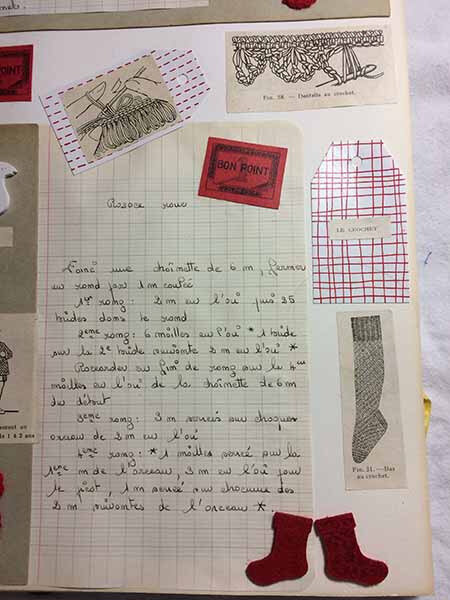 BON POINT
FIG. 58. — Dentelle au crochet.
BON POINT
1
Rosace roue
LE CROCHET
Faire une chaînette de 6 m, fermer
en rond par 1 m coulée
1er rang : 2 m en l'air puis 25
brides dans le rond
2ème rang : 6 mailles en l'air * 1 bride
sur la 2e bride suivante 2 m en l'air *
Raccorder en fin de rang sur la 4ème
mailles en l'air de la chaînette de 6 m
du début
3ème rang : 3 m serrées sur chaque
arceau de 2 m en l'air
4ème rang : * 1 mailles serrée sur la
1ère m de l'arceau, 3 m en l'air pour
le picot, 1 m serrée sur chacune des
2 m suivantes de l'arceau *.
de 1 à 2 ans
FIG. 51. — Bas
au crochet.